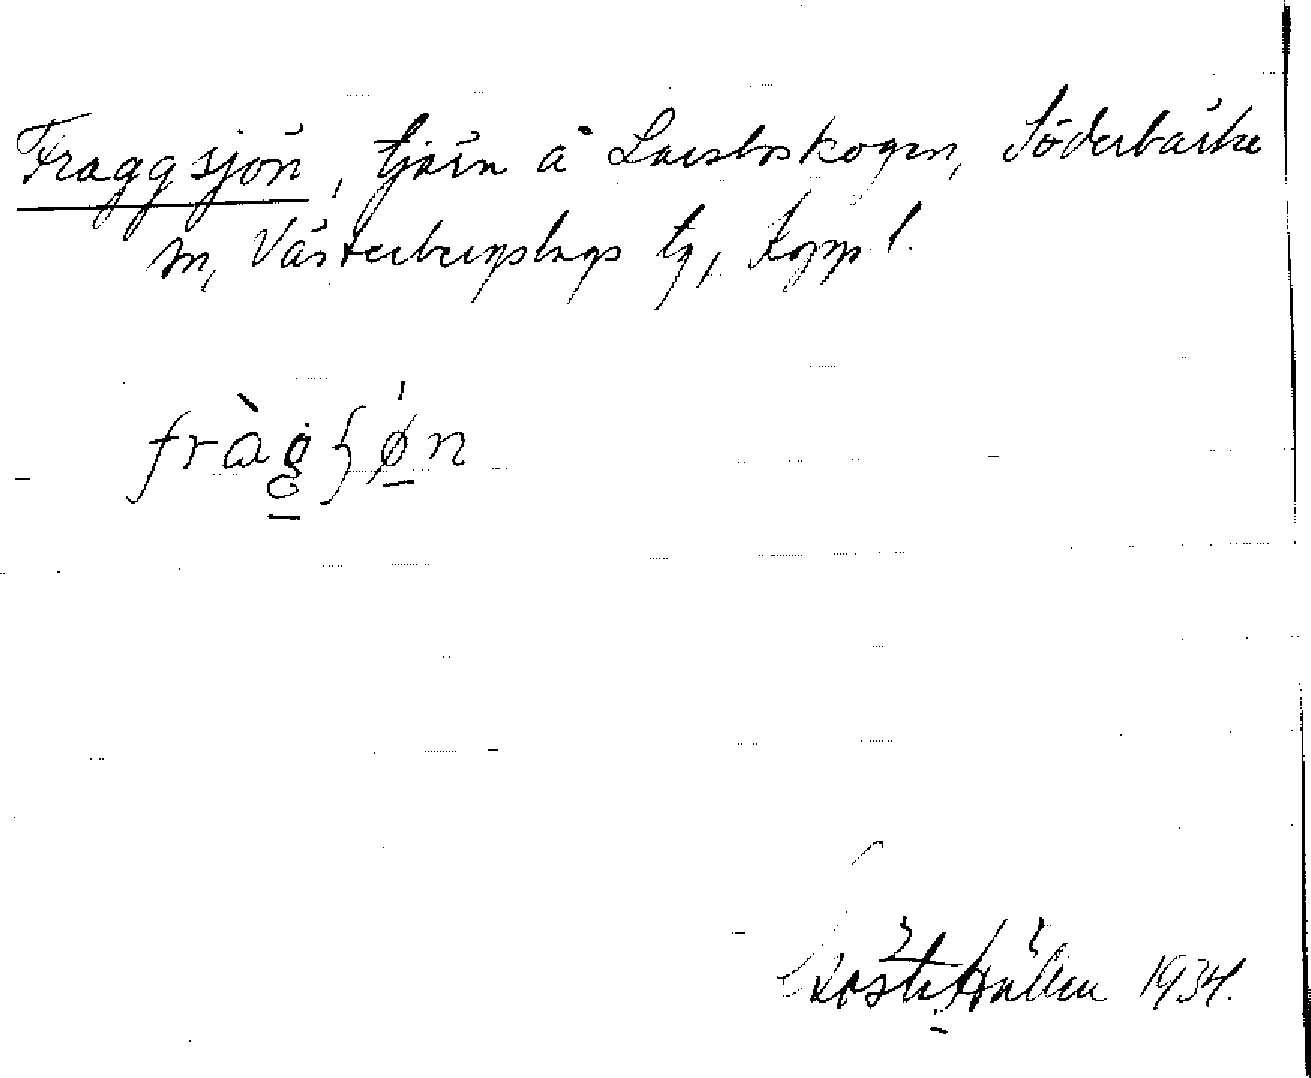 Fraggsjön, tjärn å Larsboskogen, Söderbärke
sn, Västerbergslags tg, Kopp l.
fràgʃø̱n
Gösta Hällen 1934.